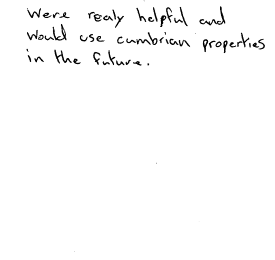 Were realy helpful and
would use cumbrian properties
in the future.